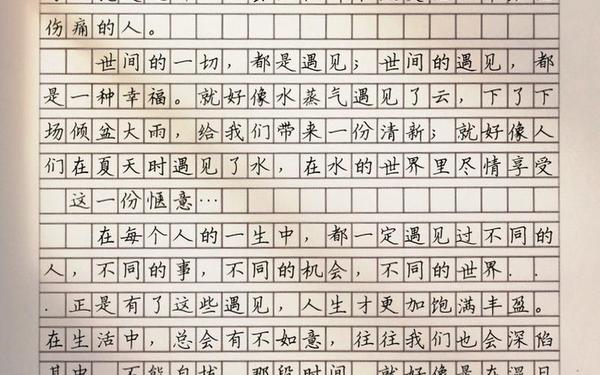 伤痛的人。
世间的一切，都是遇见；世间的遇见，都
是一种幸福。就好像水蒸气遇见了云，下了下
场倾盆大雨，给我们带来一份清新；就好像人
们在夏天时遇见了水，在水的世界里尽情享受
这一份惬意…
在每个人的一生中，都一定遇见过不同的
人，不同的事，不同的机会，不同的世界..
.正是有了这些遇见，人生才更加饱满丰盈。
在生活中，总会有不如意，往往我们也会深陷
其中，不能自拔。那段时间，就好像是在漫